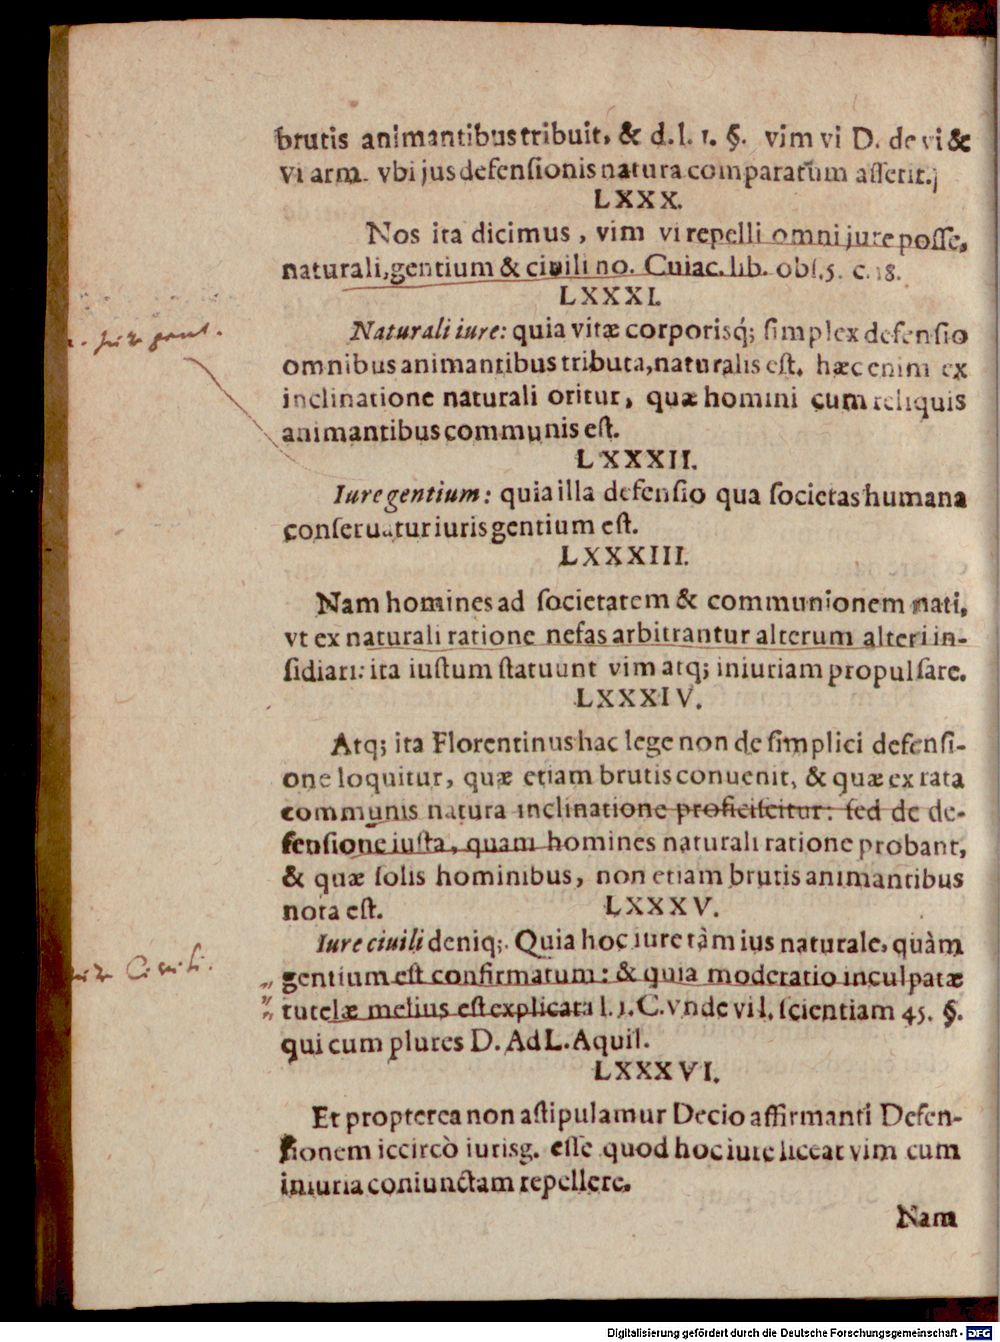 brutis animantibus tribuit, & d. l. 1. §. vim vi D. de vi &
vi arm. vbi jus defensionis natura comparatum asserit.
LXXX.
Nos ita dicimus, vim vi repelli omni jure posse,
naturali, gentium & ciuili no. Cuiac. lib. obs. 5. c. 18.
LXXXI.
Naturali iure: quia vitæ corporisq́; simplex defensio
omnibus animantibus tributa, naturalis est. hæc enim ex
inclinatione naturali oritur, quæ homini cum reliquis
animantibus communis est.
LXXXII.
Iure gentium: quia illa defensio qua societas humana
conseruatur iuris gentium est.
LXXXIII.
Nam homines ad societatem & communionem nati,
vt ex naturali ratione nefas arbitrantur alterum alteri in-
sidiari: ita iustum statuunt vim atq; iniuriam propulsare.
LXXXIV.
Atq; ita Florentinus hac lege non de simplici defensi-
one loquitur, quæ etiam brutis conuenit, & quæ ex rata
communis natura inclinatione proficiscitur: sed de de-
fensione iusta, quam homines naturali ratione probant,
& quæ solis hominibus, non etiam brutis animantibus
nota est.
LXXXV.
Iure ciuili deniq;. Quia hoc iure tàm ius naturale, quàm
gentium est confirmatum: & quia moderatio inculpatæ
tutelæ melius est explicata l. 1. C. vnde vi l. scientiam 45. §.
qui cum plures D. Ad L. Aquil.
LXXXVI.
Et propterea non astipulamur Decio affirmanti Defen-
sionem iccircò iurisg. esse quod hoc iure liceat vim cum
iniuria coniunctam repellere.
Nam
Civili.
Digitalisierung gefördert durch die Deutsche Forschungsgemeinschaft - DFG